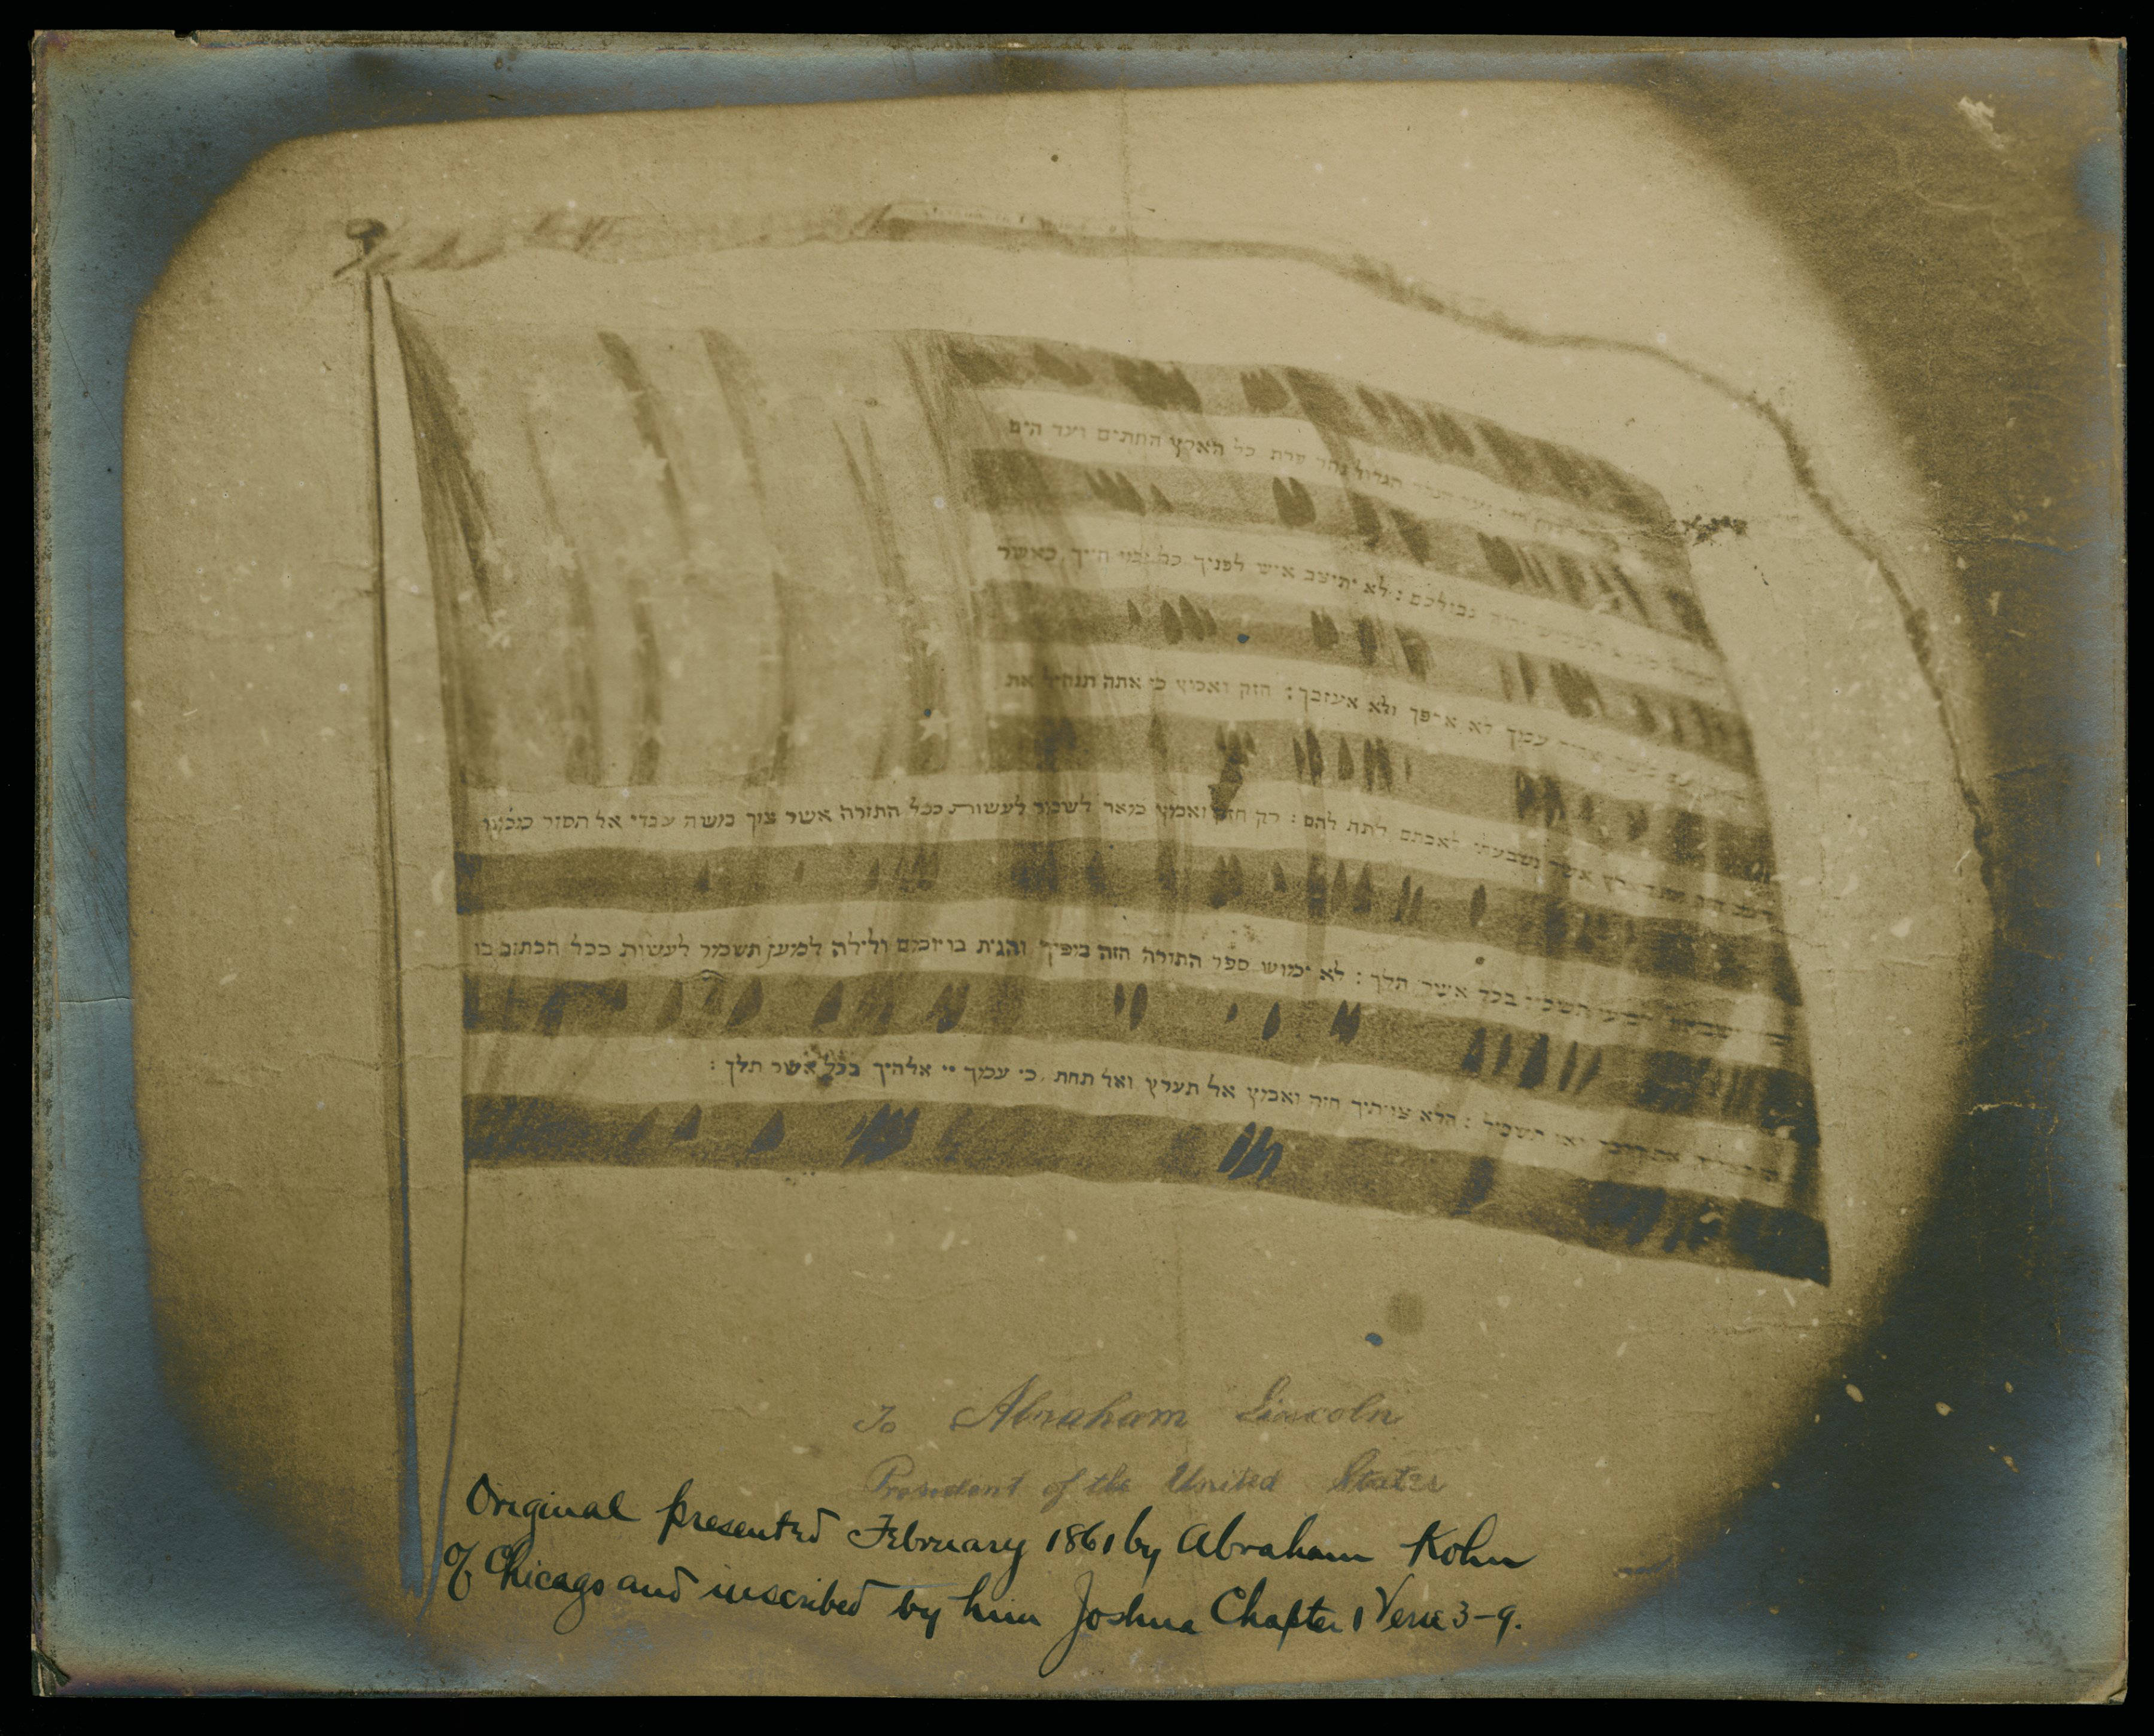 הגדול נהר פרת כל הארץ החתים ועד הים
גבולכם : לא יתיצב איש לפניך כל ימי חייך כאשר
עמך לא ארפך ולא אעזבך : חזק ואמץ כי אתה תנחיל את
אשר נשבעתי לאבתם לתת להם : רק חזק ואמץ מאד לשמר לעשות ככל התורה אשר צוך משה עבדי אל תסור ממנו
תשכיל בכל אשר תלך : לא ימוש ספר התורה הזה מפיך והגית בו יומם ולילה למען תשמר לעשות ככל הכתוב בו
ואז תשכיל : הלא צויתיך חזק ואמץ אל תערץ ואל תחת כי עמך יי אלהיך בכל אשר תלך :
To Abraham Lincoln
President of the United States
Original presented February 1861 by Abraham Kohn
of Chicago and inscribed by him Joshua Chapter 1 Verse 3-9.